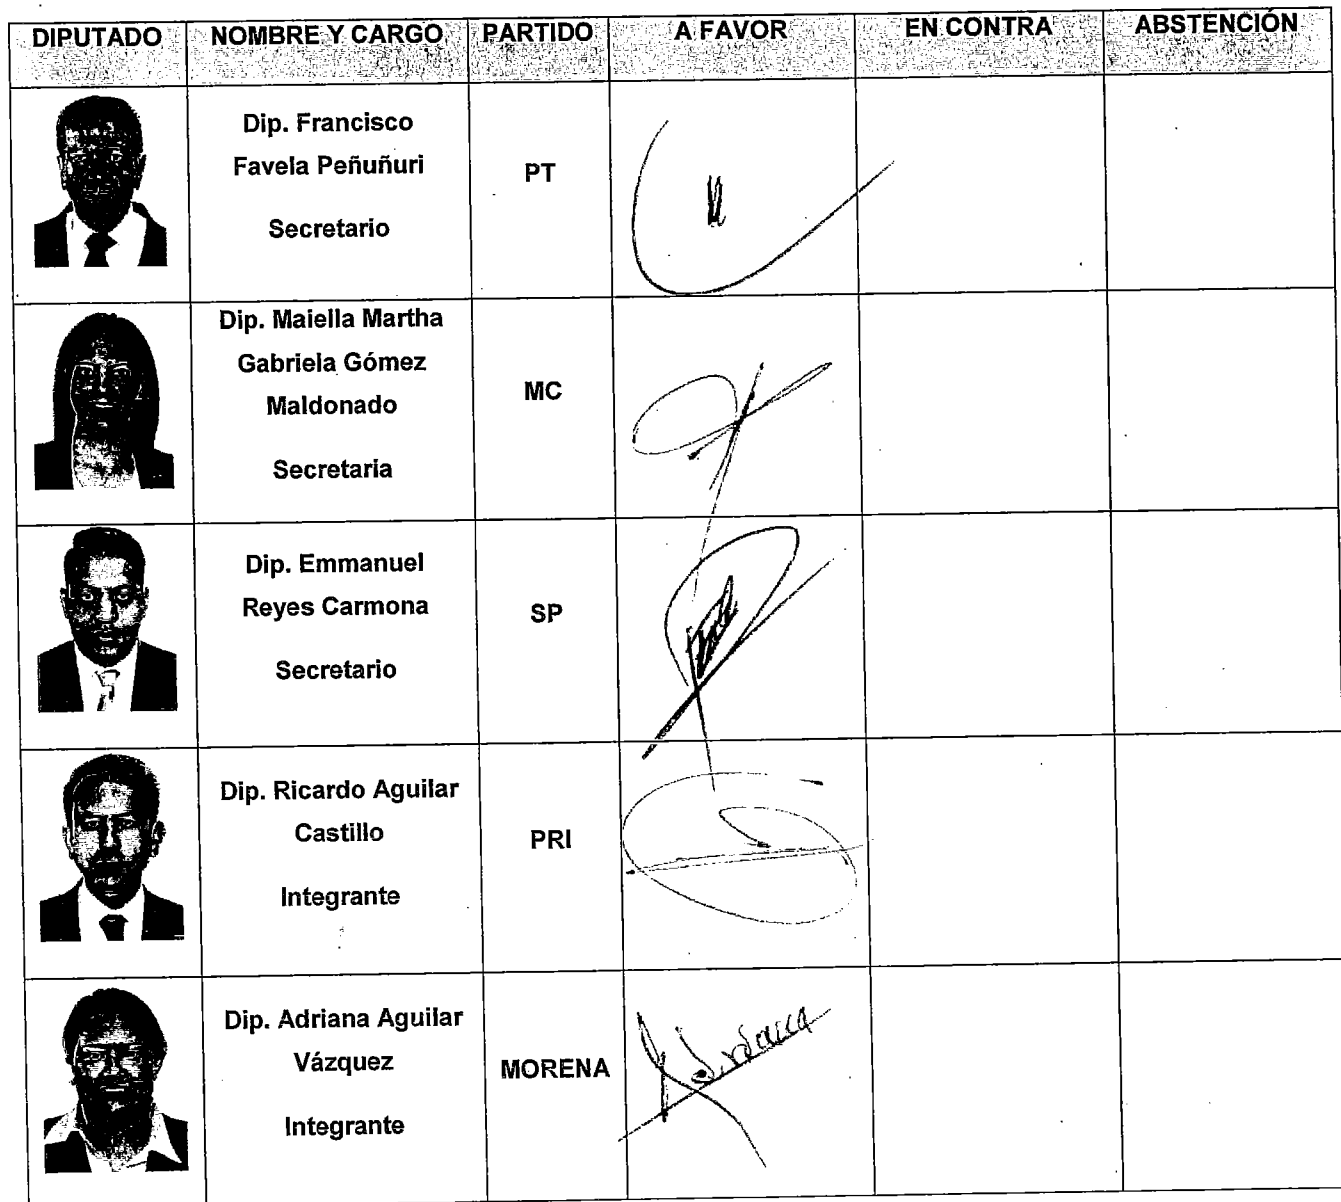 DIPUTADO NOMBRE Y CARGO PARTIDO A FAVOR EN CONTRA ABSTENCIÓN
Dip. Francisco
Favela Peñuñuri
PT
Secretario
Dip. Maiella Martha
Gabriela Gómez
MC
Maldonado
Secretaria
Dip. Emmanuel
Reyes Carmona
SP
Secretario
Dip. Ricardo Aguilar
Castillo
PRI
Integrante
Dip. Adriana Aguilar
Vázquez
MORENA
Adriana
Integrante